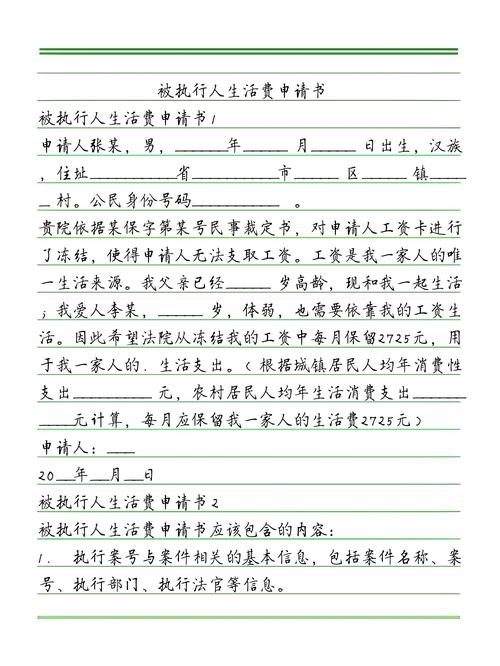 被执行人生活费申请书
被执行人生活费申请书1
申请人张某，男，_______年______ 月______ 日出生，汉族
，住址___________省___________市______ 区______ 镇_____
_ 村。公民身份号码___________ 。
贵院依据某保字第某号民事裁定书，对申请人工资卡进行
了冻结，使得申请人无法支取工资。工资是我一家人的唯
一生活来源。我父亲已经______ 岁高龄，现和我一起生活
；我爱人李某，______ 岁，体弱，也需要依靠我的工资生
活。因此希望法院从冻结我的工资中每月保留2725元，用
于我一家人的．生活支出。（根据城镇居民人均年消费性
支出__________ 元，农村居民人均年生活消费支出_______
____元计算，每月应保留我一家人的生活费2725元）
申请人：___
20__年__月__日
被执行人生活费申请书2
被执行人生活费申请书应该包含的内容：
1． 执行案号与案件相关的基本信息，包括案件名称、案
号、执行部门、执行法官等信息。